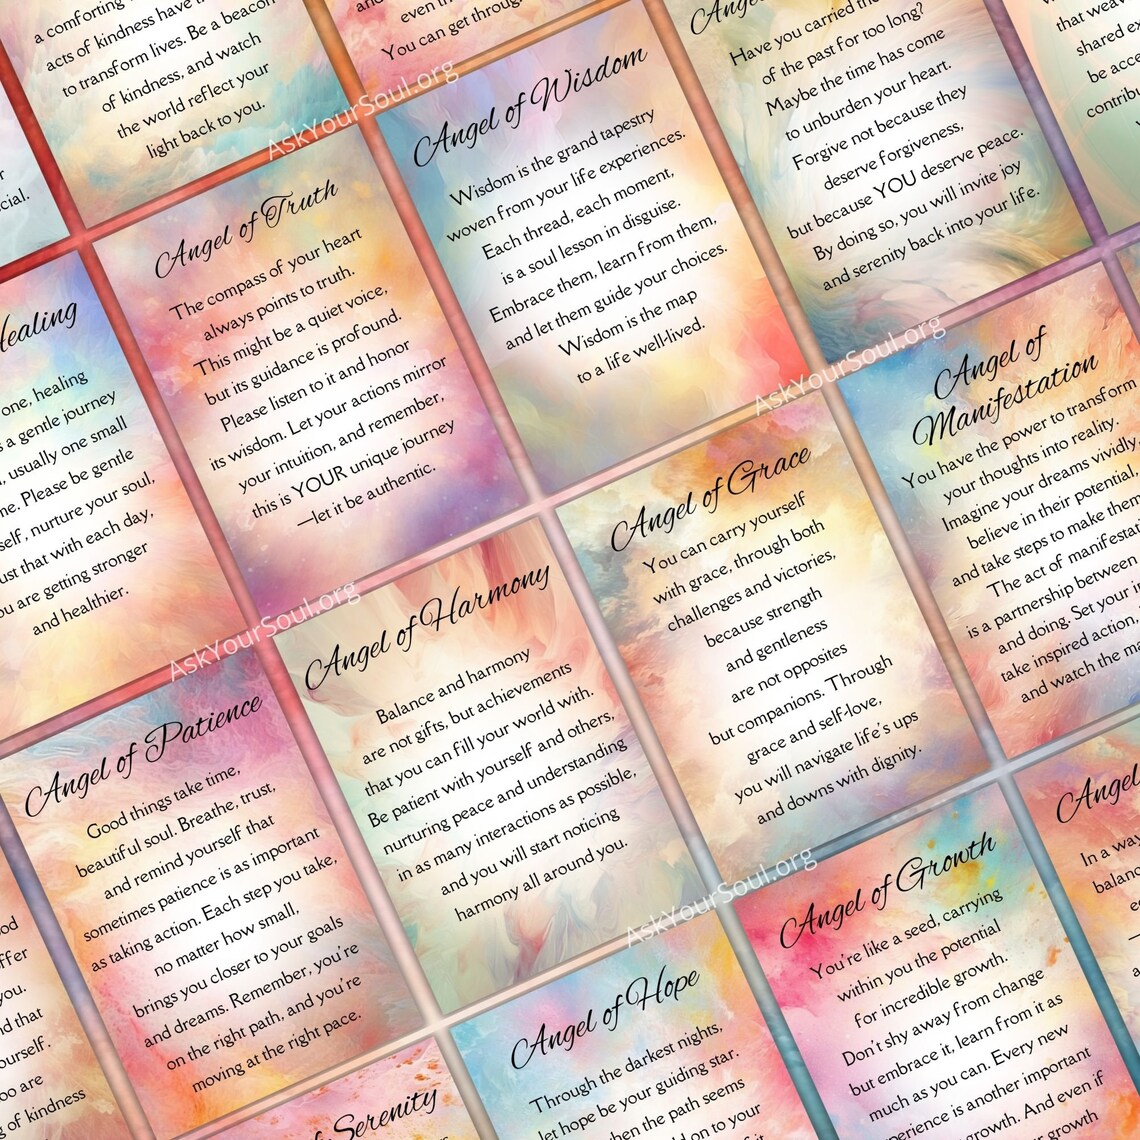 a comforting
acts of kindness have
to transform lives. Be a beacon
of kindness, and watch
the world reflect your
light back to you.
even
You can get through
AskYourSoul.org
Angel of Wisdom
Wisdom is the grand tapestry
woven from your life experiences.
Each thread, each moment,
is a soul lesson in disguise.
Embrace them, learn from them,
and let them guide your choices.
Wisdom is the map
to a life well-lived.
Angel
Have you carried the
of the past for too long?
Maybe the time has come
to unburden your heart.
Forgive not because they
deserve forgiveness,
but because YOU deserve peace.
By doing so, you will invite joy
and serenity back into your life.
that
shared
be
Angel of Truth
The compass of your heart
always points to truth.
This might be a quiet voice,
but its guidance is profound.
Please listen to it and honor
its wisdom. Let your actions mirror
your intuition, and remember,
this is YOUR unique journey
—let it be authentic.
Healing
one, healing
s a gentle journey
, usually one small
me. Please be gentle
self, nurture your soul,
ust that with each day,
ou are getting stronger
and healthier.
AskYourSoul.org
Angel of
Manifestation
You have the power to transform
your thoughts into reality.
Imagine your dreams vividly,
believe in their potential,
and take steps to make them
The act of manifesta
is a partnership between
and doing. Set your
take inspired action,
and watch the ma
Angel of Grace
You can carry yourself
with grace, through both
challenges and victories,
because strength
and gentleness
are not opposites
but companions. Through
grace and self-love,
you will navigate life's ups
and downs with dignity.
AskYourSoul.org
Angel of Harmony
Balance and harmony
are not gifts, but achievements
that you can fill your world with.
Be patient with yourself and others,
nurturing peace and understanding
in as many interactions as possible,
and you will start noticing
harmony all around you.
Angel of Patience
Good things take time,
beautiful soul. Breathe, trust,
and remind yourself that
sometimes patience is as important
as taking action. Each step you take,
no matter how small,
brings you closer to your goals
and dreams. Remember, you're
on the right path, and you're
moving at the right pace.
AskYourSoul.org
Angel of Growth
You're like a seed, carrying
within you the potential
for incredible growth.
Don't shy away from change
but embrace it, learn from it as
much as you can. Every new
experience is another important
growth. And even if
growth
Angel
In a way
balance
Angel of Hope
Through the darkest nights,
let hope be your guiding star.
when the path seems
on to your
Serenity
you.
and that
yourself.
too are
of kindness